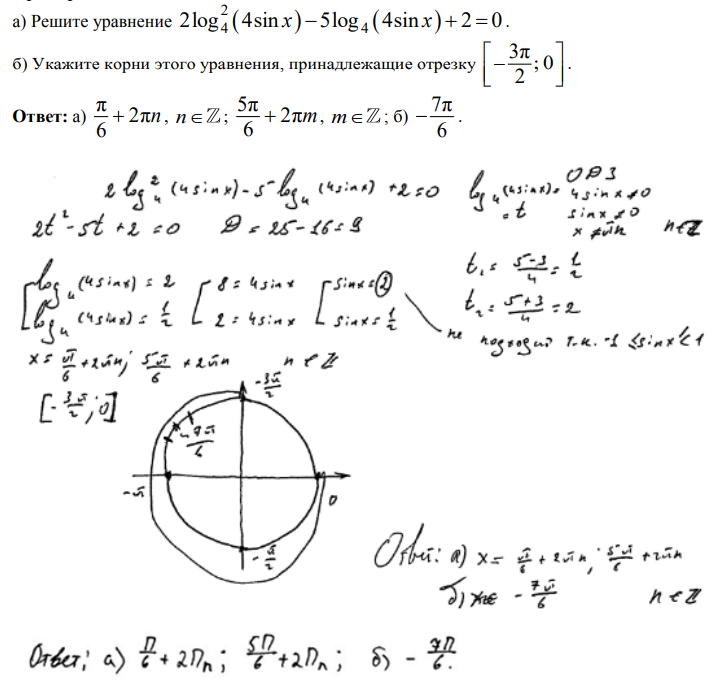 а) Решите уравнение 2log₄²(4sin x) − 5log₄(4sin x) + 2 = 0.
б) Укажите корни этого уравнения, принадлежащие отрезку [−3π/2; 0].
Ответ: а) π/6 + 2πn, n ∈ ℤ; 5π/6 + 2πm, m ∈ ℤ; б) −7π/6.
ОДЗ
2 log₄² (4sinx) - 5 log₄ (4sinx) + 2 = 0 log₄(4sinx) = t 4sinx ≠ 0
2t² - 5t + 2 = 0 D = 25 - 16 = 9 sinx ≠ 0
x ≠ πn n ∈ Z
t₁ = (5-3)/4 = 1/2
log₄(4sinx) = 2 [ 8 = 4sinx [ sinx = 2
t₂ = (5+3)/4 = 2
log₄(4sinx) = 1/2 [ 2 = 4sinx [ sinx = 1/2
не подходит т.к. -1 ≤ sinx ≤ 1
x = π/6 + 2πn; 5π/6 + 2πn n ∈ Z
[-3π/2; 0]
-3π/2
-7π/6
-π
0
-π/2
Ответ: а) x = π/6 + 2πn; 5π/6 + 2πn
б) -7π/6 n ∈ Z
Ответ: а) П/6 + 2Пn; 5П/6 + 2Пn; б) - 7П/6.